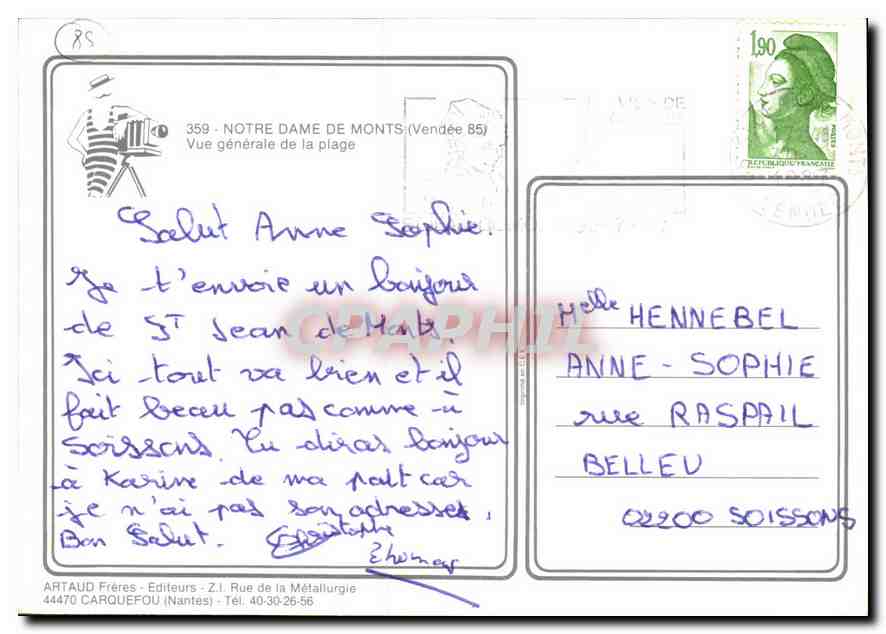 85
359 - NOTRE DAME DE MONTS (Vendée 85)
Vue générale de la plage
Salut Anne Sophie.
Je t'envoie un bonjour
de ST Jean de Monts.
Ici tout va bien et il
fait beau pas comme à
Soissons. Tu diras bonjour
à Karine de ma part car
je n'ai pas son adresse.
Bon Salut. Christophe
Thomas
1,90
POSTES
REPUBLIQUE FRANÇAISE
Melle HENNEBEL
ANNE - SOPHIE
rue RASPAIL
BELLEU
02200 SOISSONS
CPAPHIL
ARTAUD Frères - Editeurs - Z.I. Rue de la Métallurgie
44470 CARQUEFOU (Nantes) - Tél. 40-30-26-56